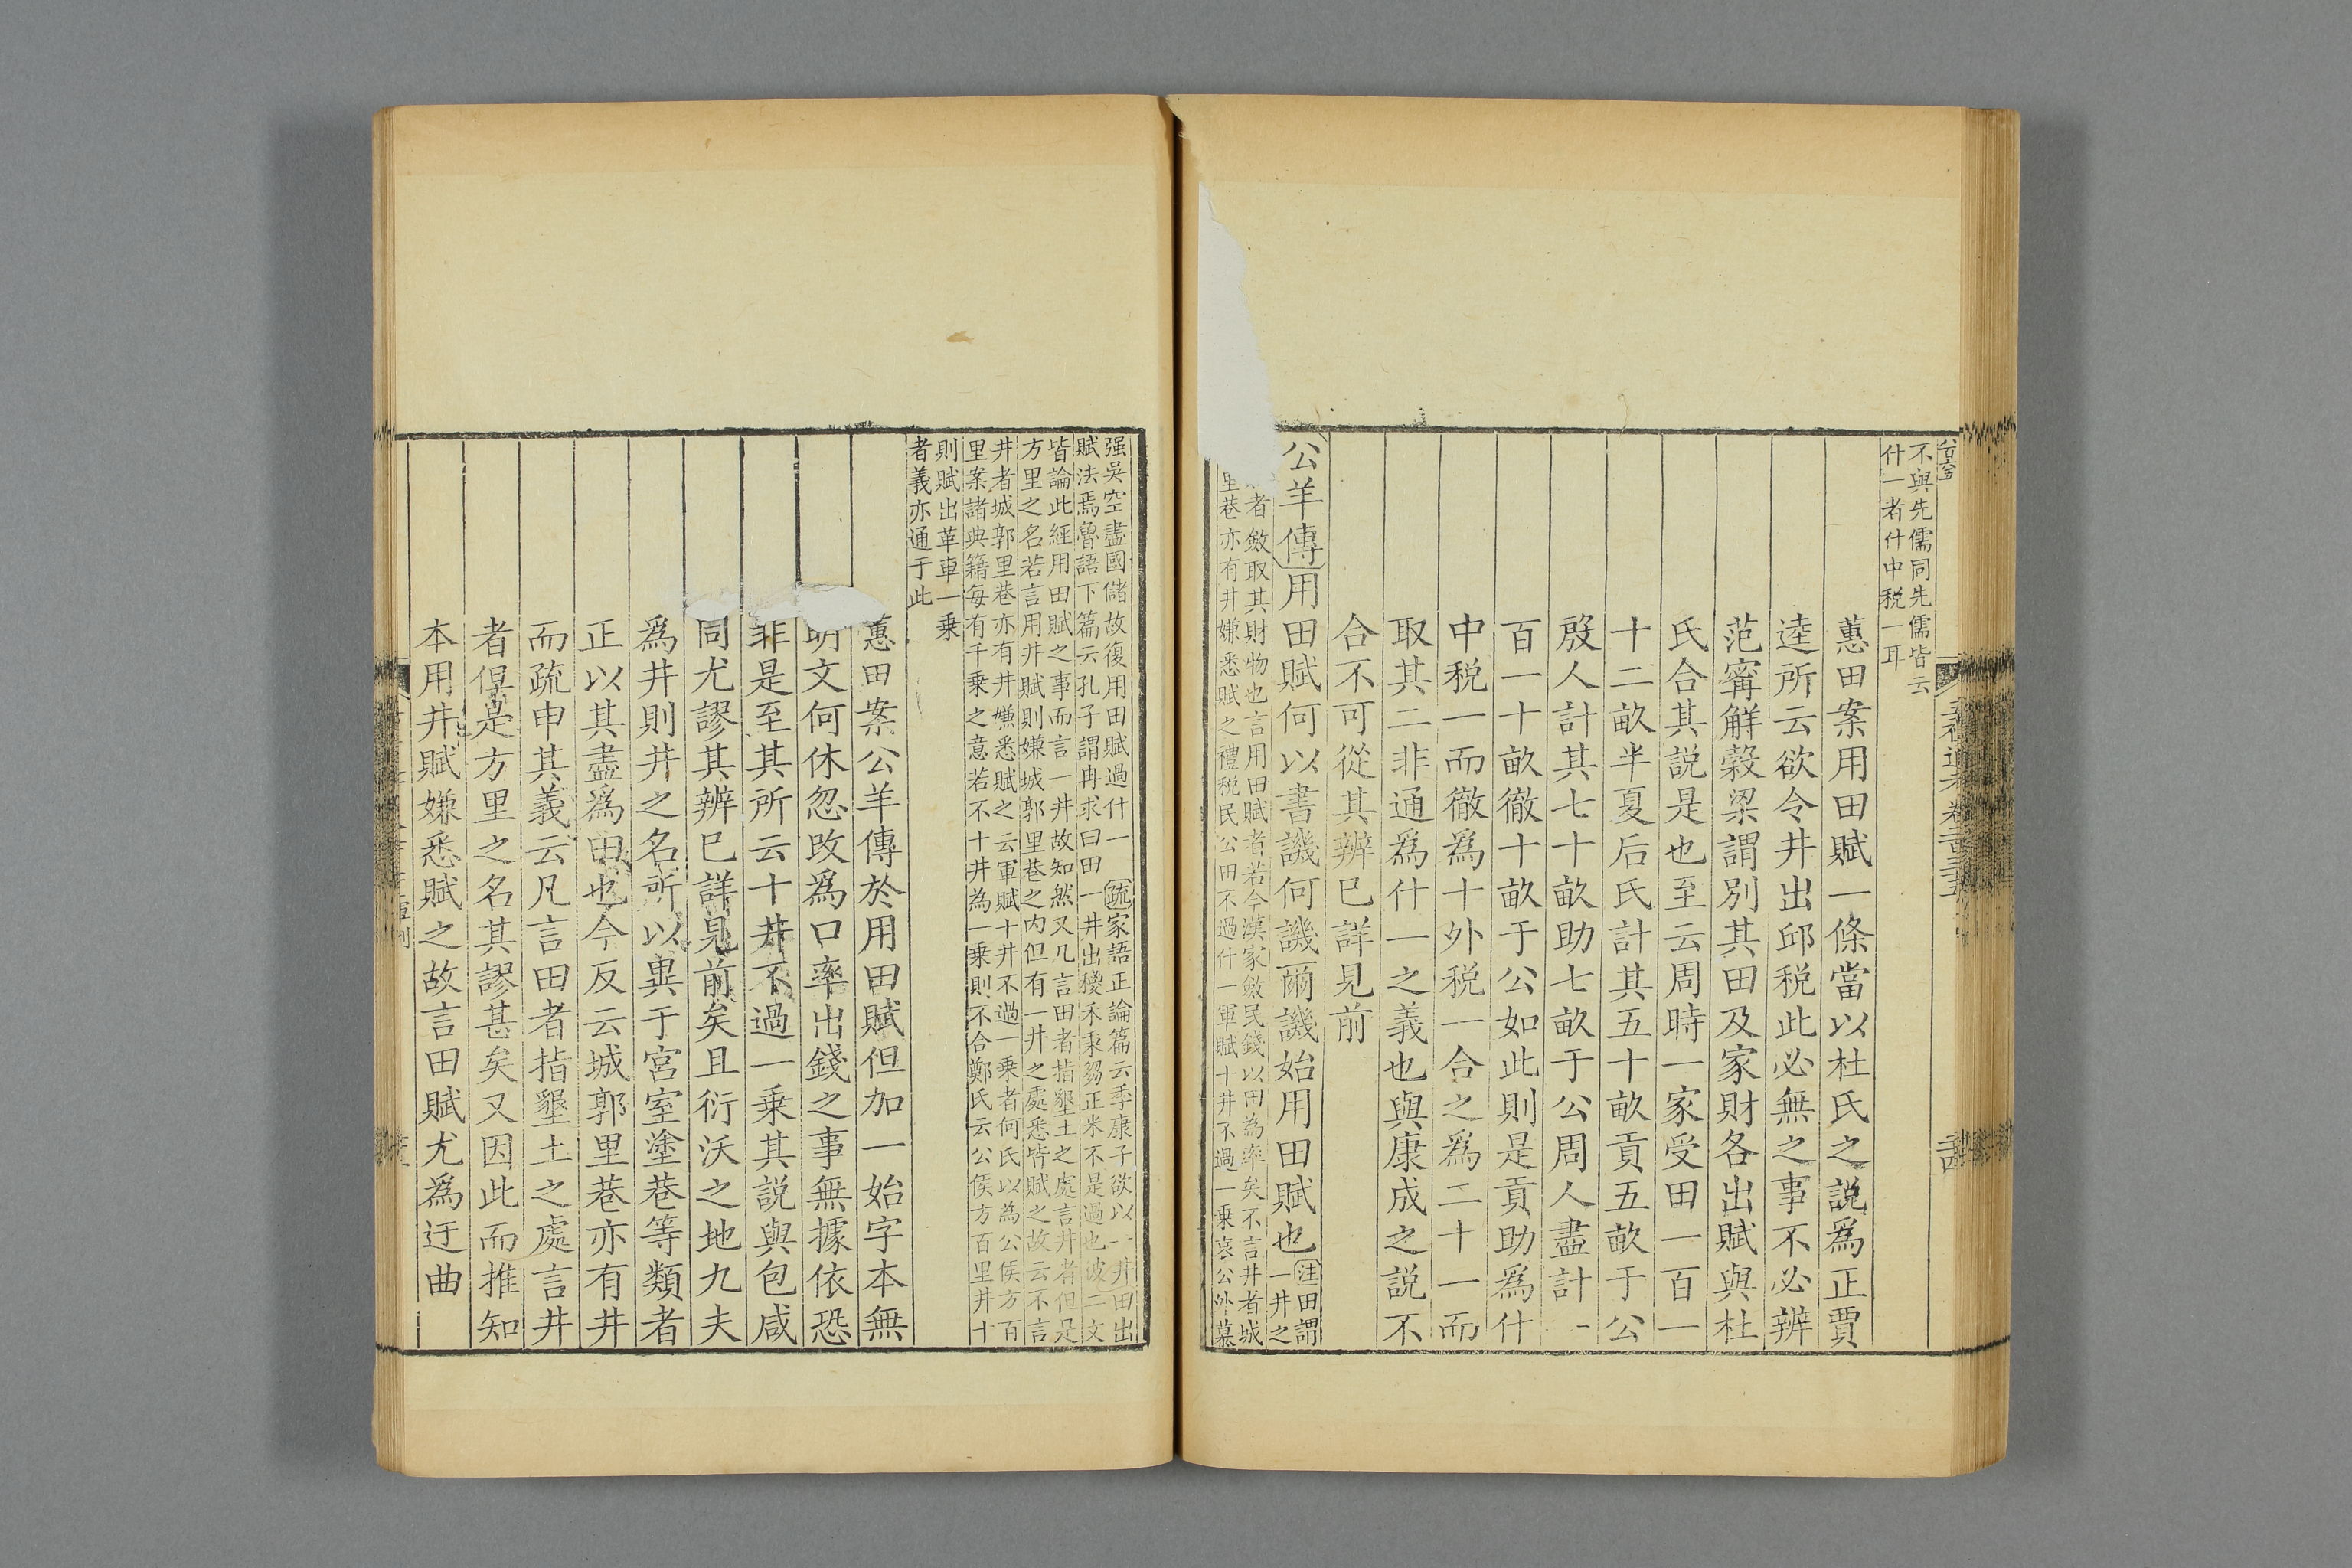 不與先儒同先儒皆云
什一者什中税一耳
蕙田案用田賦一條當以杜氏之説爲正賈
逵所云欲令井出邱税此必無之事不必辨
范甯觧穀梁謂別其田及家財各出賦與杜
氏合其説是也至云周時一家受田一百一
十二畝半夏后氏計其五十畝貢五畝于公
殷人計其七十畝助七畝于公周人盡計一
百一十畝徹十畝于公如此則是貢助爲什
中税一而徹爲十外税一合之爲二十一而
取其二非通爲什一之義也與康成之説不
合不可從其辨已詳見前
公羊傳用田賦何以書譏何譏爾譏始用田賦也
注田謂
一井之
者斂取其財物也言用田賦者若今漢家斂民錢以田為率矣不言井者城
里巷亦有井嫌悉賦之禮税民公田不過什一軍賦十井不過一乗哀公外慕
强吳空盡國儲故復用田賦過什一 疏家語正論篇云季康子欲以一井田出
賦法焉魯語下篇云孔子謂冉求曰田一井出稯禾秉芻缶米不是過也彼二文
皆論此經用田賦之事而言一井故知然又凡言田者指墾土之處言井者但是
方里之名若言用井賦則嫌城郭里巷之内但有一井之處悉皆賦之故云不言
井者城郭里巷亦有井嫌悉賦之云軍賦十井不過一乗者何氏以為公侯方百
里案諸典籍每有千乗之意若不十井為一乗則不合鄭氏云公侯方百里井十
則賦出革車一乗
者義亦通于此
蕙田案公羊傳於用田賦但加一始字本無
明文何休忽改爲口率出錢之事無據依恐
非是至其所云十井不過一乗其説與包咸
同尤謬其辨已詳見前矣且衍沃之地九夫
爲井則井之名所以異于宮室塗巷等類者
正以其盡爲田也今反云城郭里巷亦有井
而疏申其義云凡言田者指墾土之處言井
者但是方里之名其謬甚矣又因此而推知
本用井賦嫌悉賦之故言田賦尤爲迂曲